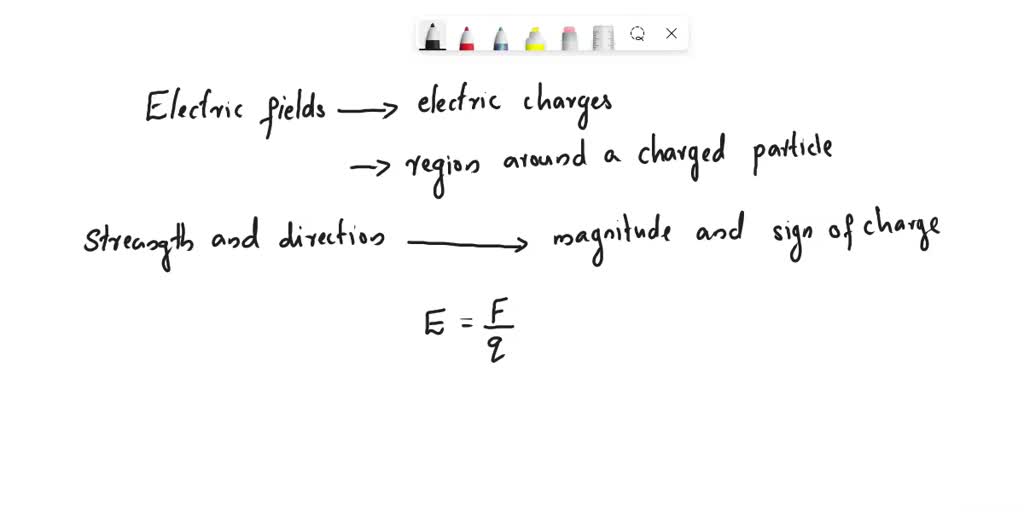 Electric fields → electric charges
→ region around a charged particle
Strength and direction → magnitude and sign of charge
E = F/q